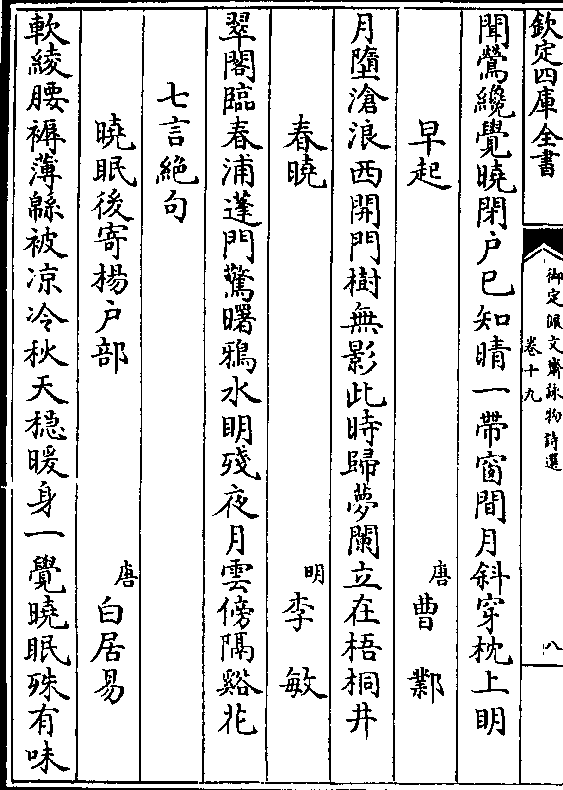 欽定四庫全書
御定佩文齋詠物詩選
卷十九
八
聞鶯纔覺曉閉户已知晴一帶窗間月斜穿枕上明
早起 唐 曹鄴
月墮滄浪西開門樹無影此時歸夢闌立在梧桐井
春曉 明 李敏
翠閣臨春浦蓬門驚曙鴉水明殘夜月雲傍隔谿花
七言絶句
曉眠後寄楊户部 唐 白居易
軟綾腰褥薄緜被凉冷秋天穏暖身一覺曉眠殊有味